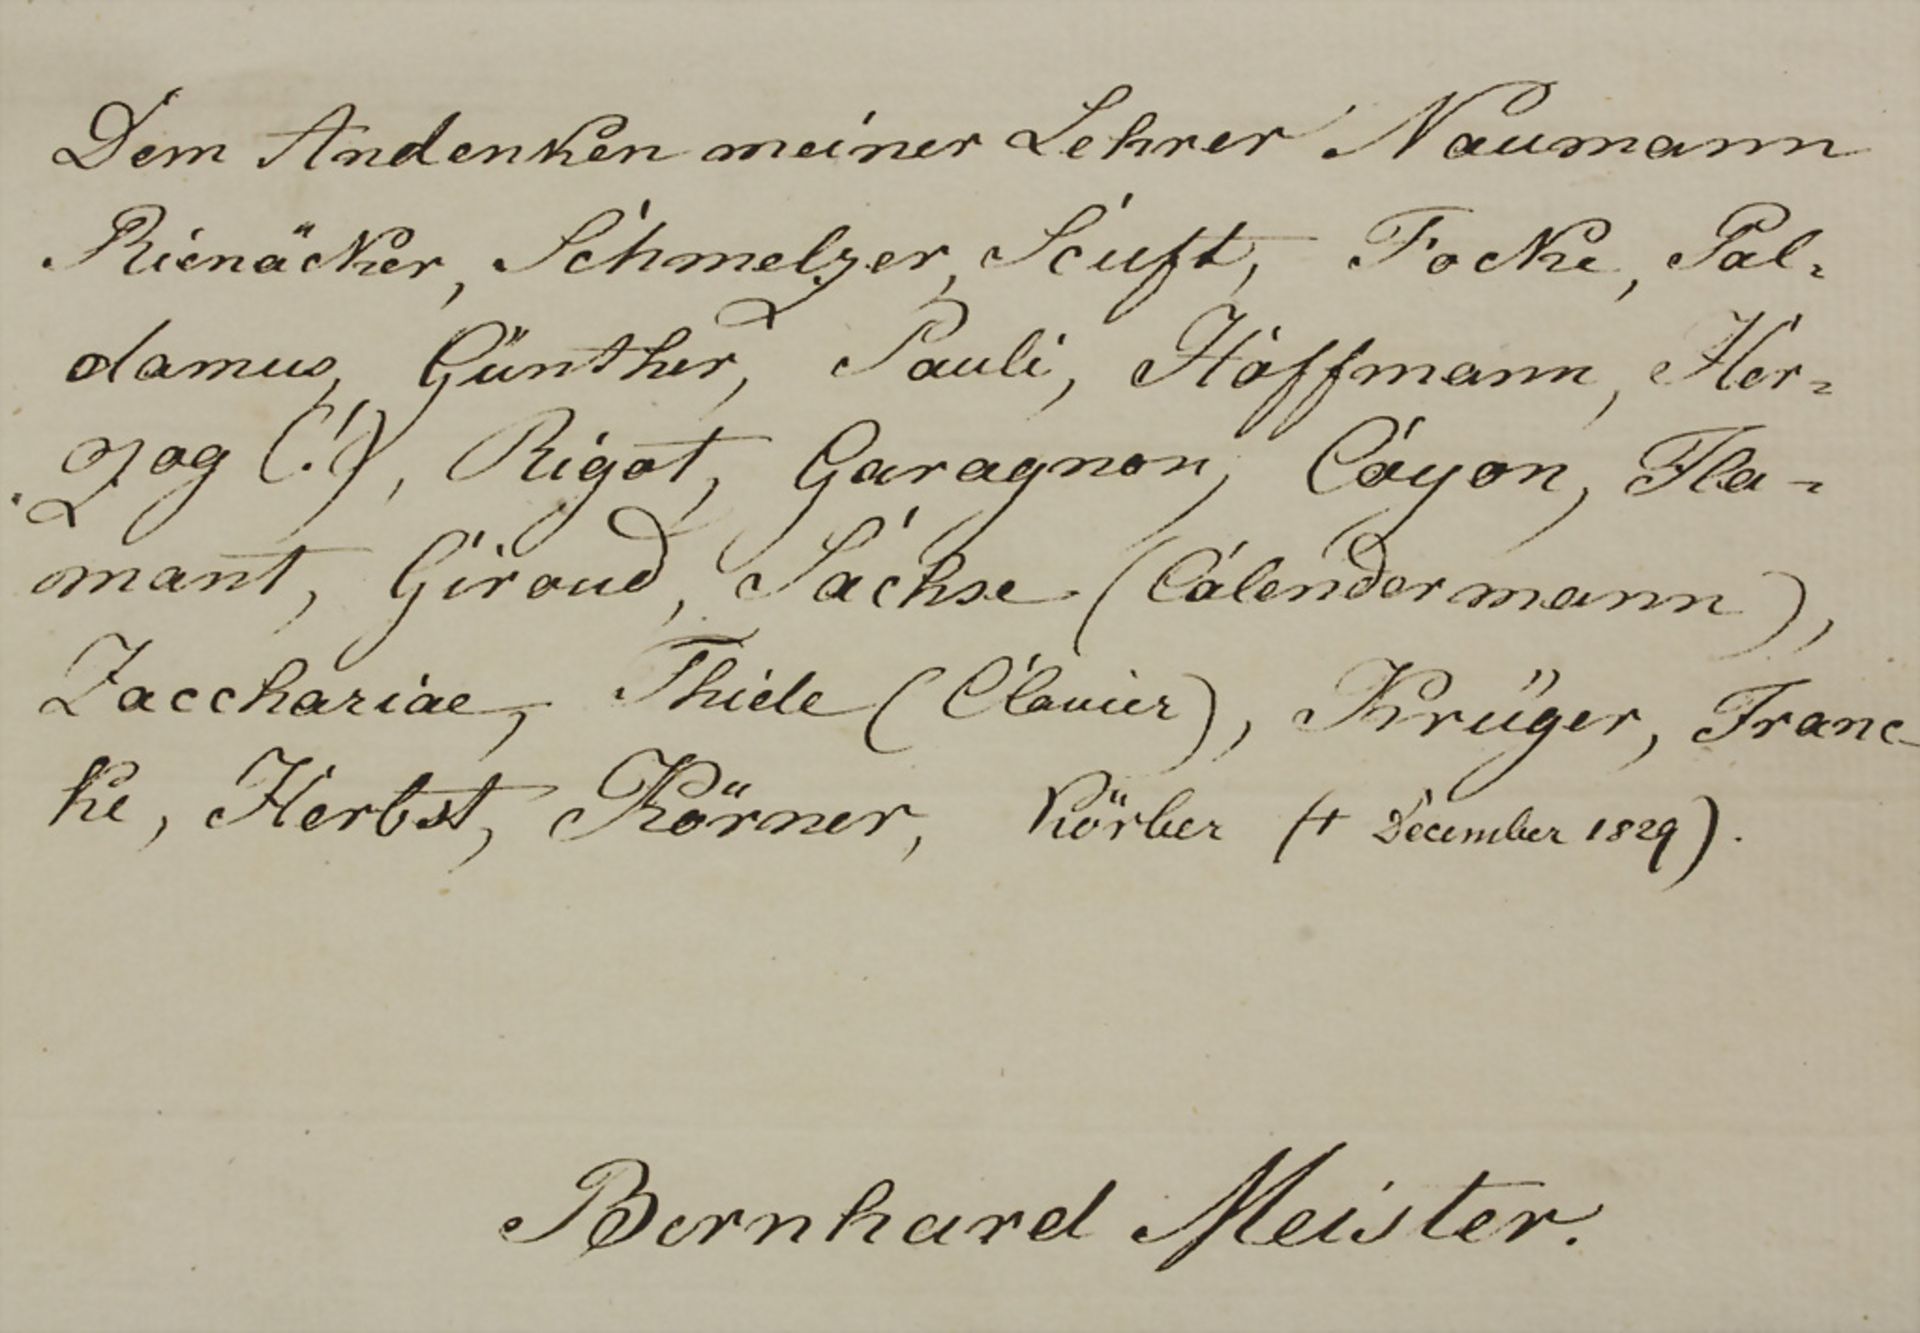 Dem Andenken meiner Lehrer Naumann
Rienäcker, Schmelzer, Scuft, Focke, Pal-
damus, Günther, Pauli, Hoffmann, Her-
zog (!), Rigot, Garagnon, Coyon, Fla-
mant, Giroud, Sachse (Calendermann),
Zacchariae, Thiele (Clavier), Krüger, Franc-
ke, Herbst, Körner, Körber († December 1829).
Bernhard Meister.